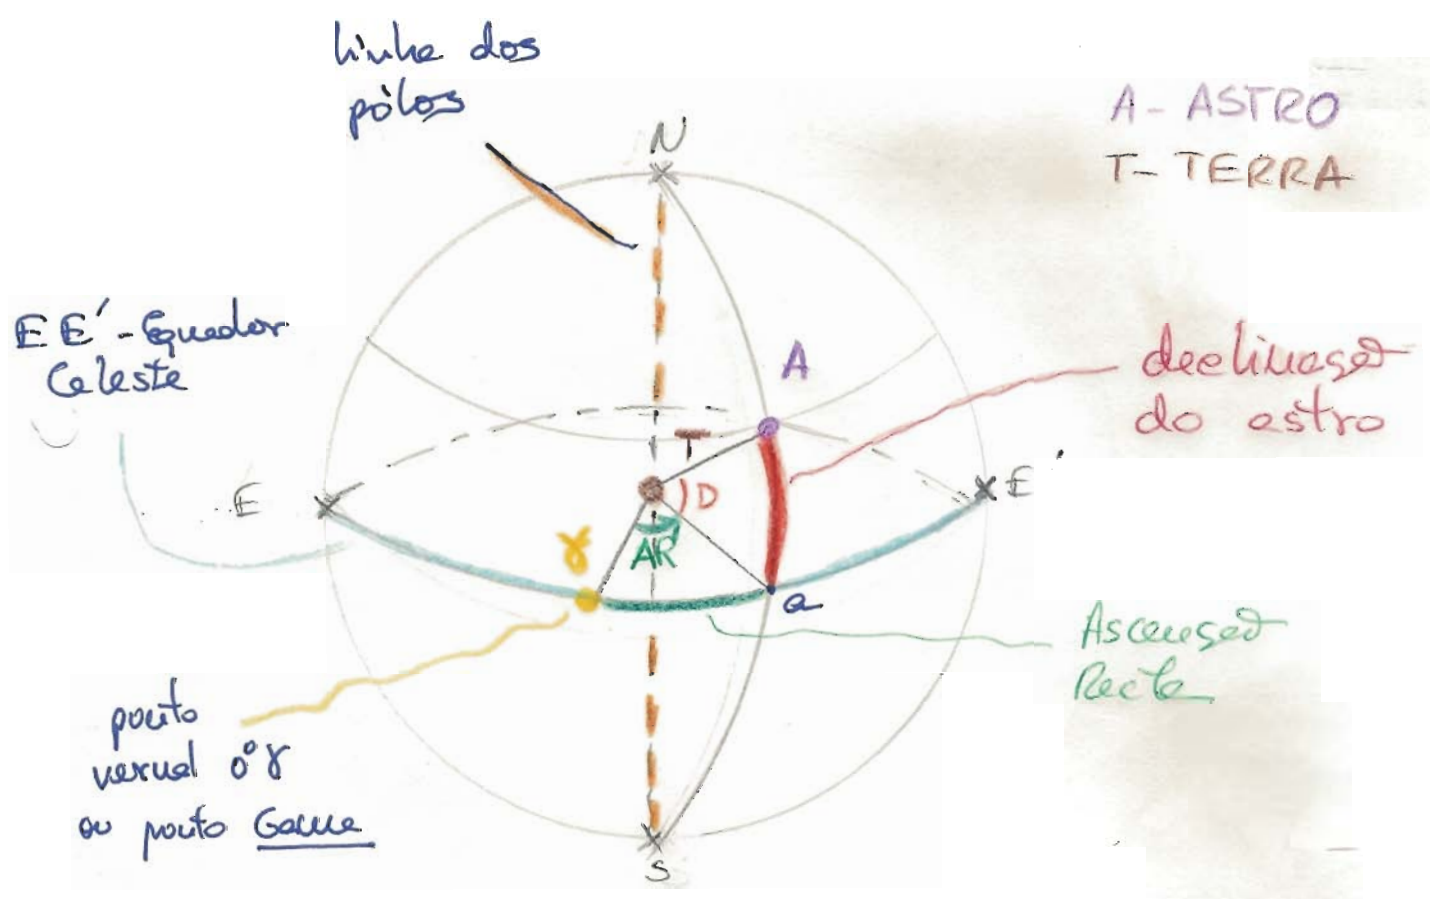 linha dos
pólos
N
A - ASTRO
T - TERRA
E E' - Equador
Celeste
A
declinação
do astro
T
E
E'
D
γ
AR
a
Ascensão
Recta
ponto
vernal 0° γ
ou ponto Gama
S